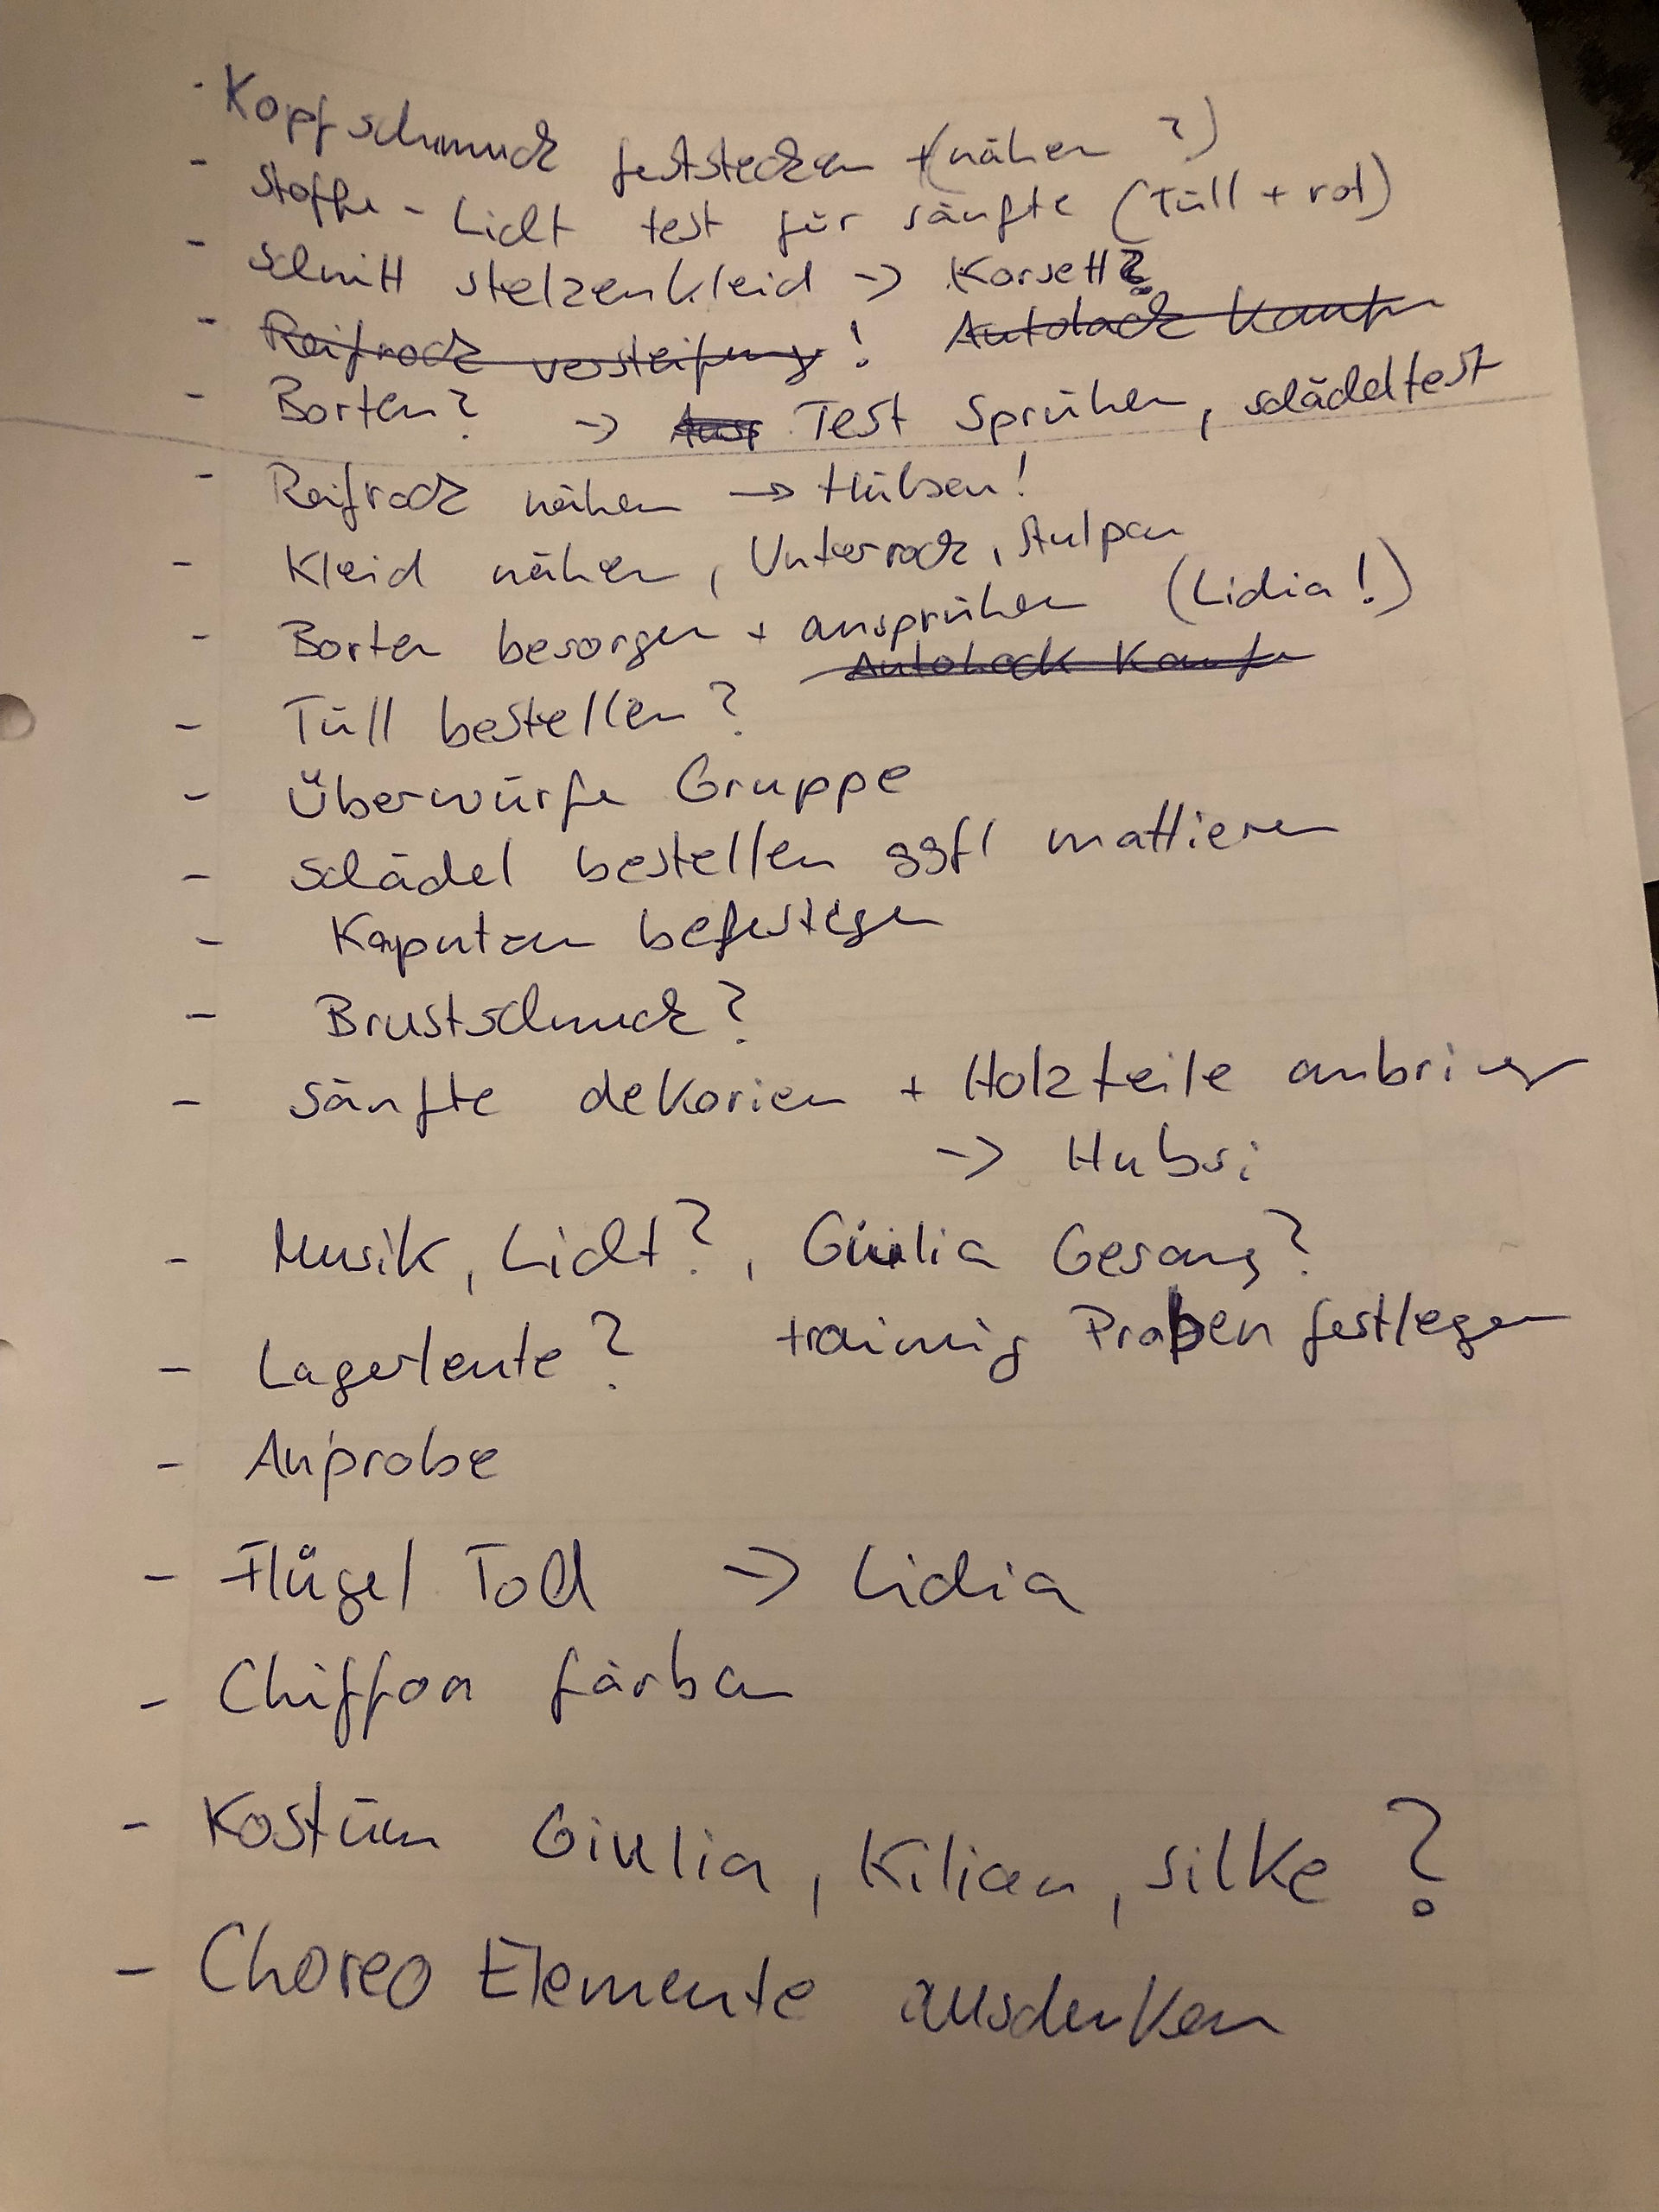 - Kopfschmuck feststecken + (nähen ?)
- Stoffe - Licht test für sänfte (Tüll + rot)
- Schnitt stelzenkleid -> Korsett?
- Reifrock versteifung ! Autolack Kaufen
- Borten? -> Test Sprühen, schädeltest
- Reifrock nähen -> Hülsen!
- Kleid nähen, Unterrock, Stulpen
- Borten besorgen + ansprühen (Lidia!)
Autolack Kaufen
- Tüll bestellen?
- Überwürfe Gruppe
- Schädel bestellen ggfl mattieren
- Kaputzen befestigen
- Brustschmuck?
- Sänfte dekorien + Holzteile anbringen
-> Hubsi
- Musik, Licht?, Giulia Gesang?
- Lagerleute? training Proben festlegen
- Anprobe
- Flügel Tod -> Lidia
- Chiffon färben
- Kostüm Giulia, Kilian, Silke ?
- Choreo Elemente ausdenken